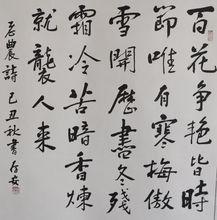 百花争艳皆時
節唯有寒梅傲
雪開歷盡冬殘
霜冷苦暗香煉
就襲人来
石農詩 己丑秋書